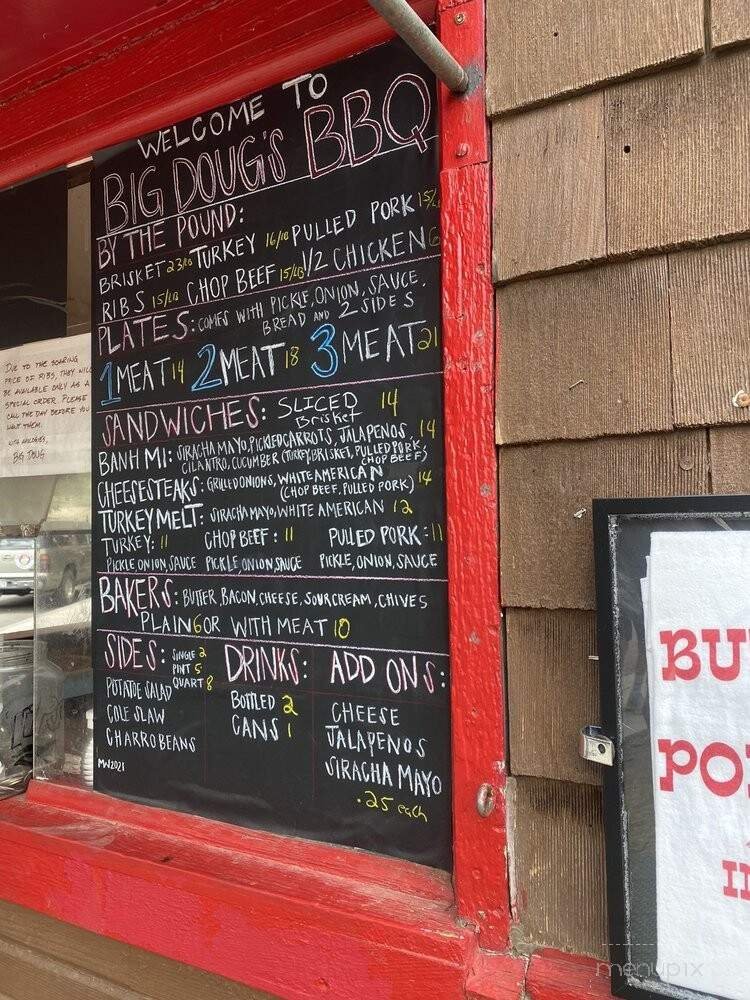 WELCOME TO
BIG DOUG'S BBQ
BY THE POUND:
BRISKET 23/LB TURKEY 16/LB PULLED PORK 15/L
RIBS 15/LB CHOP BEEF 15/LB 1/2 CHICKEN 6
PLATES: COMES WITH PICKLE, ONION, SAUCE,
BREAD AND 2 SIDES
1 MEAT 14 2 MEAT 18 3 MEAT 21
SANDWICHES: SLICED BRISKET 14
BANH MI: SIRACHA MAYO, PICKLED CARROTS, JALAPENOS, 14
CILANTRO, CUCUMBER (TURKEY, BRISKET, PULLED PORK, CHOP BEEF)
CHEESESTEAKS: GRILLED ONIONS, WHITE AMERICAN 14
(CHOP BEEF, PULLED PORK)
TURKEY MELT: SIRACHA MAYO, WHITE AMERICAN 12
TURKEY: 11 CHOP BEEF: 11 PULLED PORK: 11
PICKLE, ONION, SAUCE PICKLE, ONION, SAUCE PICKLE, ONION, SAUCE
BAKERS: BUTTER, BACON, CHEESE, SOUR CREAM, CHIVES
PLAIN 6 OR WITH MEAT 10
SIDES: SINGLE 2
PINT 5
QUART 8
POTATOE SALAD
COLE SLAW
CHARRO BEANS
MW2021
DRINKS:
BOTTLED 2
CANS 1
ADD ONS:
CHEESE
JALAPENOS
SIRACHA MAYO
.25 each
DUE TO THE SOARING
PRICE OF RIBS, THEY WILL
BE AVAILABLE ONLY AS A
SPECIAL ORDER. PLEASE
CALL THE DAY BEFORE YOU
WANT THEM.
WITH APOLOGIES,
BIG DOUG
BU
PO
IN
menupix